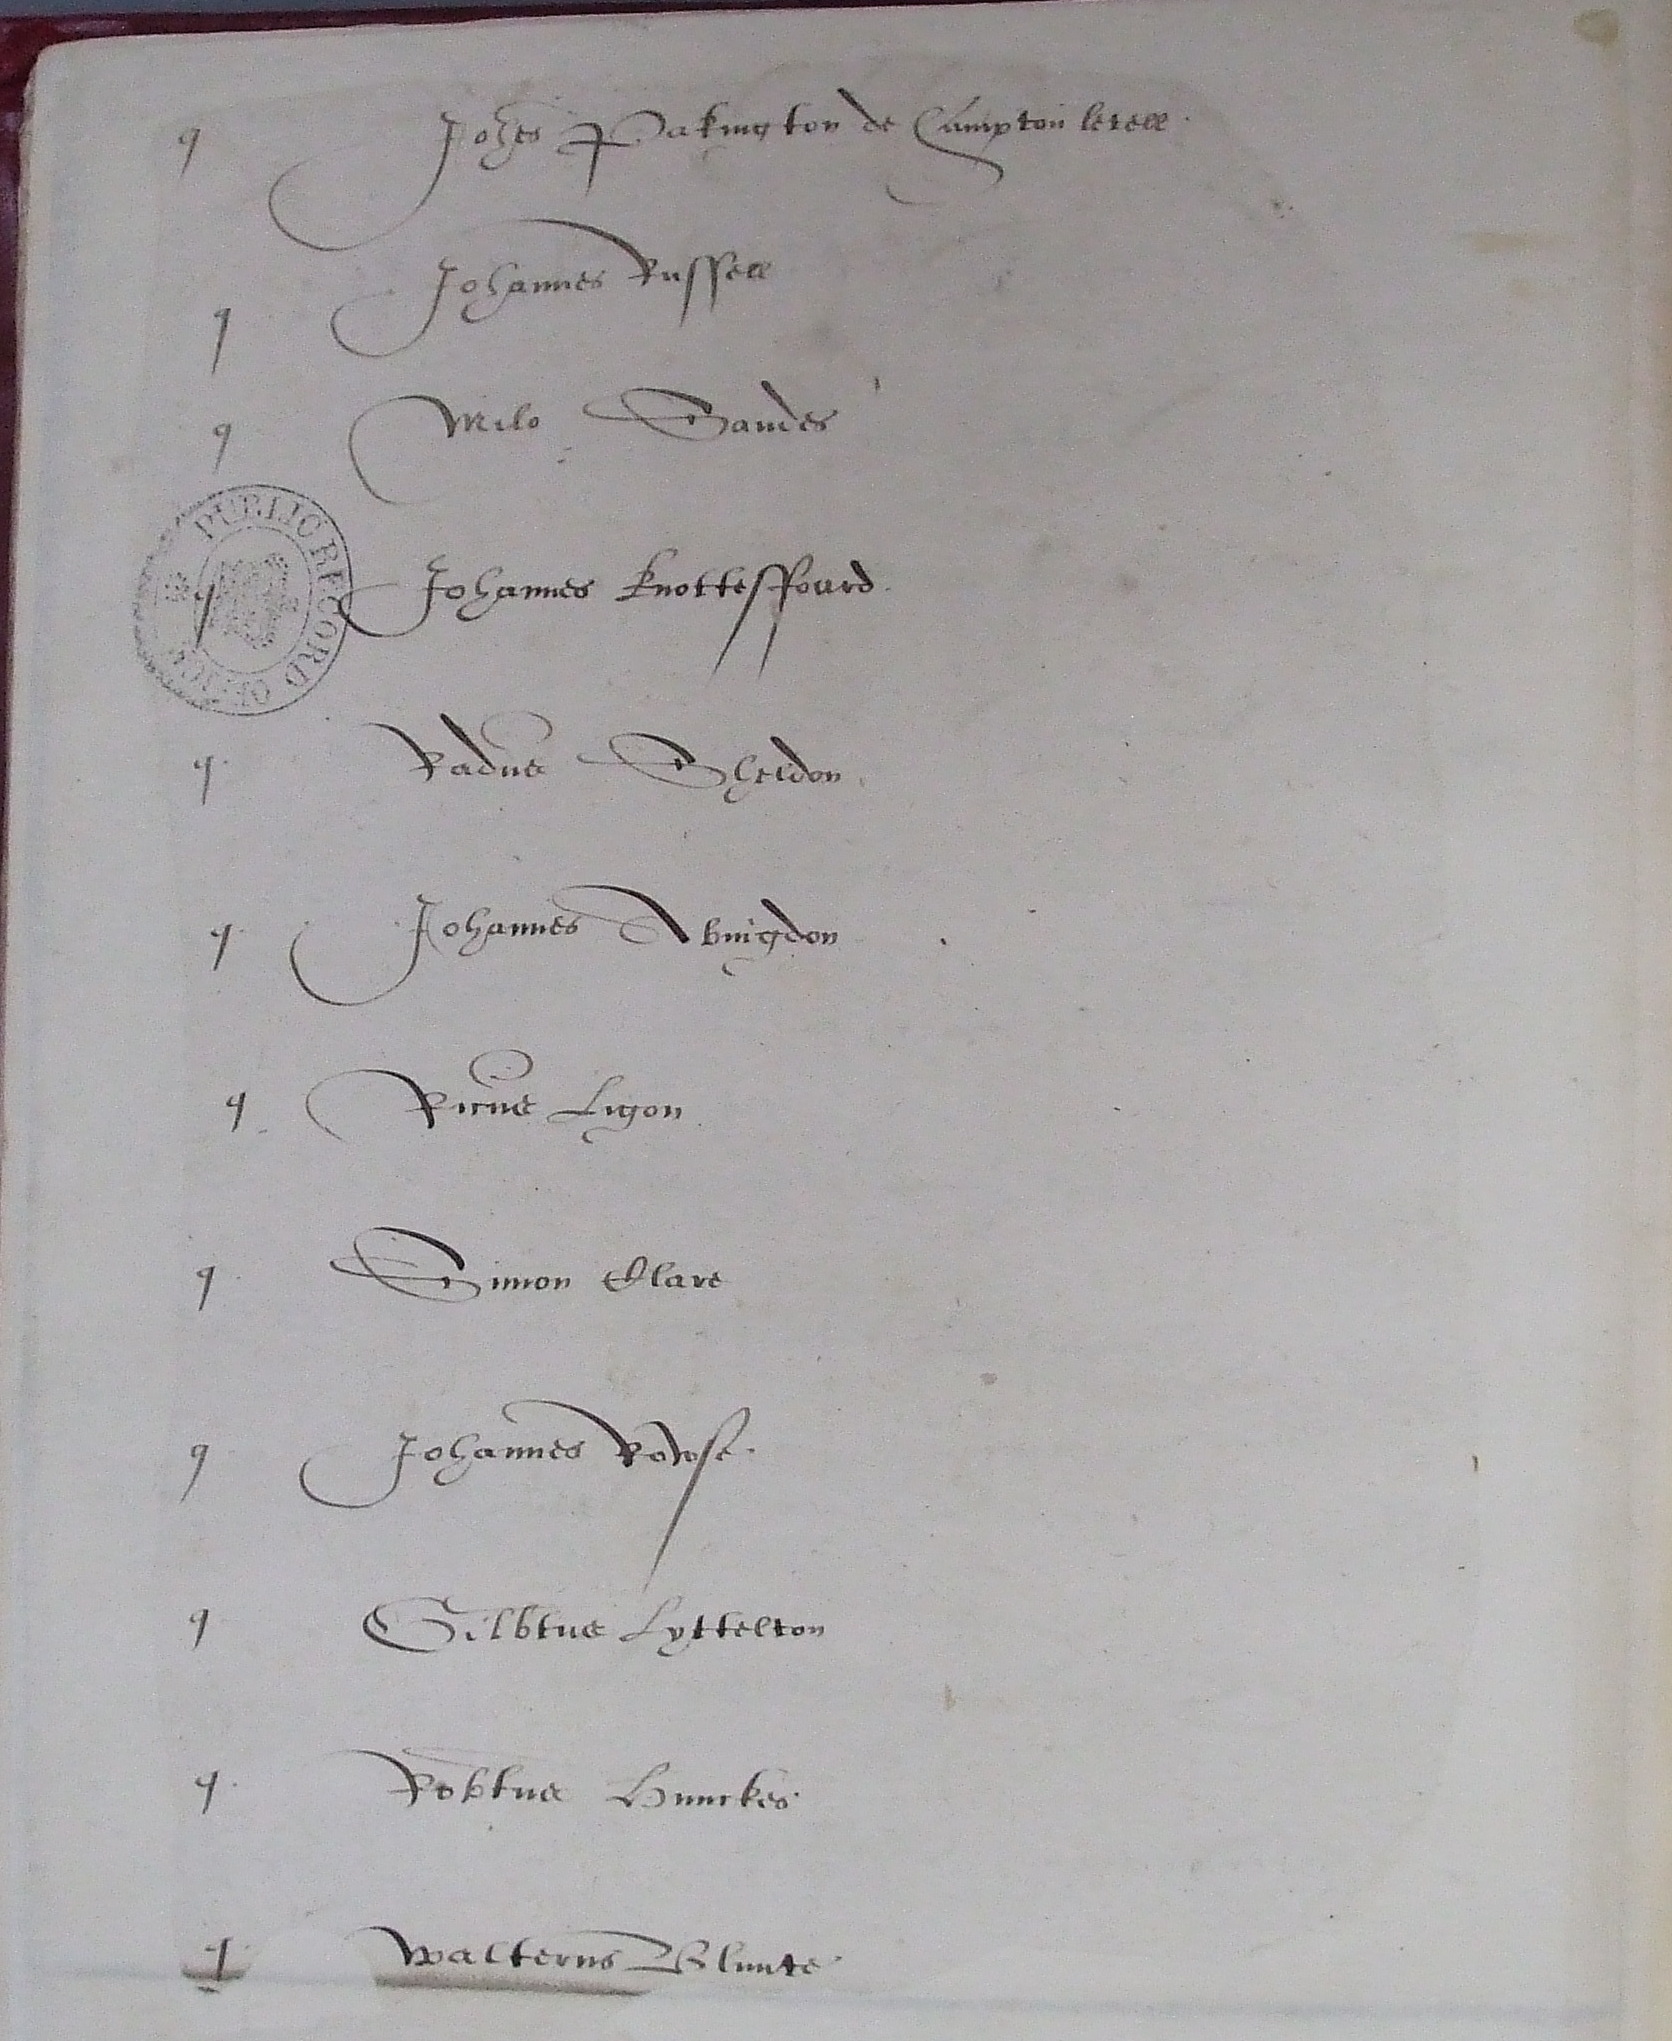 q Johes Pakington de Hampton lovell
q Johannes Russell
q Milo Sandes
q Johannes Knottesffourd
PUBLIC RECORD OFFICE
q Radus Sheldon
q Johannes Abingdon
q Ricus Ligon
q Simon Clare
q Johannes Rowse
q Gilbtus Lyttelton
q Robtus Hunckes
q Walterus Blunte